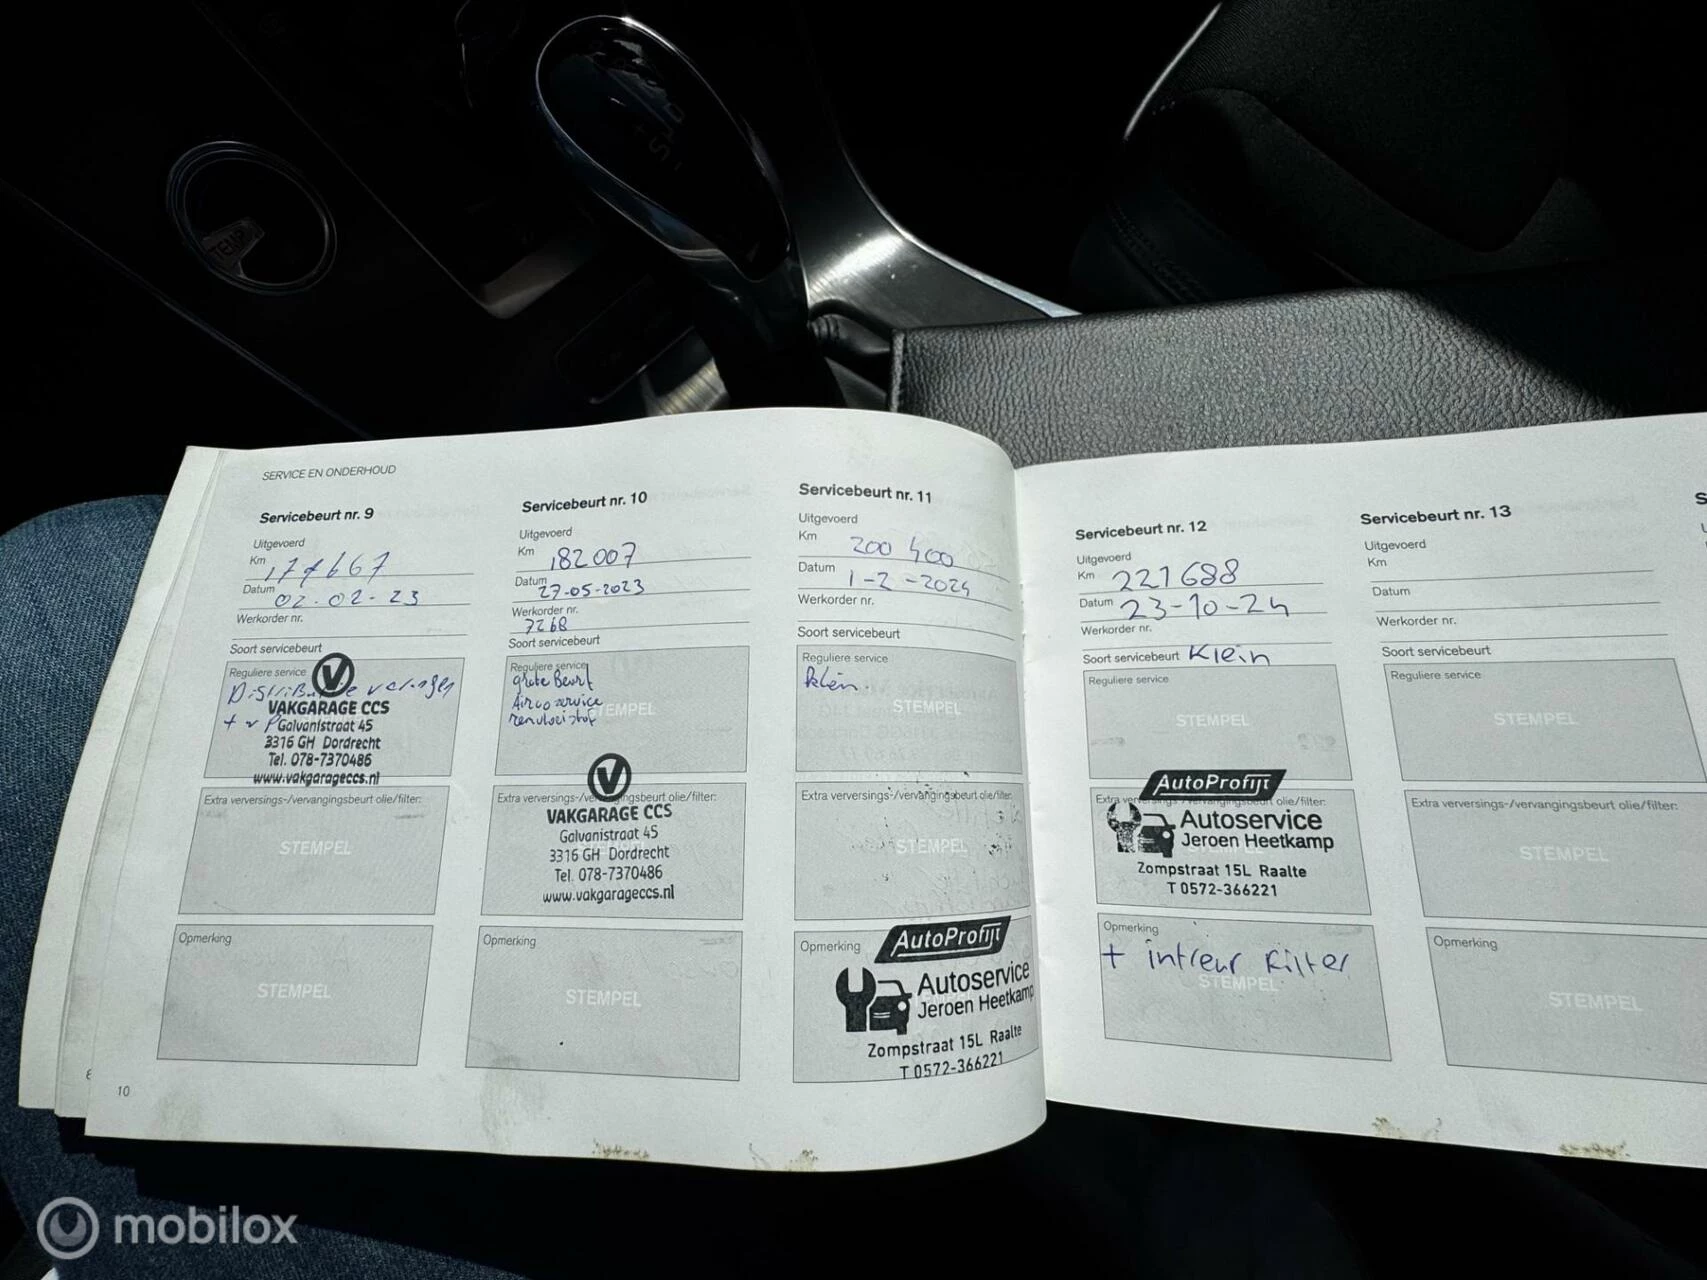 TEMP.
SERVICE EN ONDERHOUD
Servicebeurt nr. 9
Uitgevoerd
Km
Datum 02-02-23
Werkorder nr.
Soort servicebeurt
Reguliere service
Distributie vervangen
VAKGARAGE CCS
Galvanistraat 45
3316 GH Dordrecht
Tel. 078-7370486
www.vakgarageccs.nl
Extra verversings-/vervangingsbeurt olie/filter:
STEMPEL
Opmerking
STEMPEL
10
Servicebeurt nr. 10
Uitgevoerd
Km 182007
Datum 27-05-2023
Werkorder nr.
7268
Soort servicebeurt
Reguliere service
grote Beurt
Airco service
remvloeistof
STEMPEL
Extra verversings-/vervangingsbeurt olie/filter:
VAKGARAGE CCS
Galvanistraat 45
3316 GH Dordrecht
Tel. 078-7370486
www.vakgarageccs.nl
Opmerking
STEMPEL
Servicebeurt nr. 11
Uitgevoerd
Km 200 400
Datum 1-2-2024
Werkorder nr.
Soort servicebeurt
Reguliere service
klein.
STEMPEL
Extra verversings-/vervangingsbeurt olie/filter:
STEMPEL
Opmerking
AutoProfijt
Autoservice
Jeroen Heetkamp
Zompstraat 15L Raalte
T 0572-366221
Servicebeurt nr. 12
Uitgevoerd
Km 221688
Datum 23-10-24
Werkorder nr.
Soort servicebeurt Klein
Reguliere service
STEMPEL
AutoProfijt
Extra verversings-/vervangingsbeurt olie/filter:
Autoservice
Jeroen Heetkamp
Zompstraat 15L Raalte
T 0572-366221
Opmerking
+ intreur Filter
STEMPEL
Servicebeurt nr. 13
Uitgevoerd
Km
Datum
Werkorder nr.
Soort servicebeurt
Reguliere service
STEMPEL
Extra verversings-/vervangingsbeurt olie/filter:
STEMPEL
Opmerking
STEMPEL
mobilox